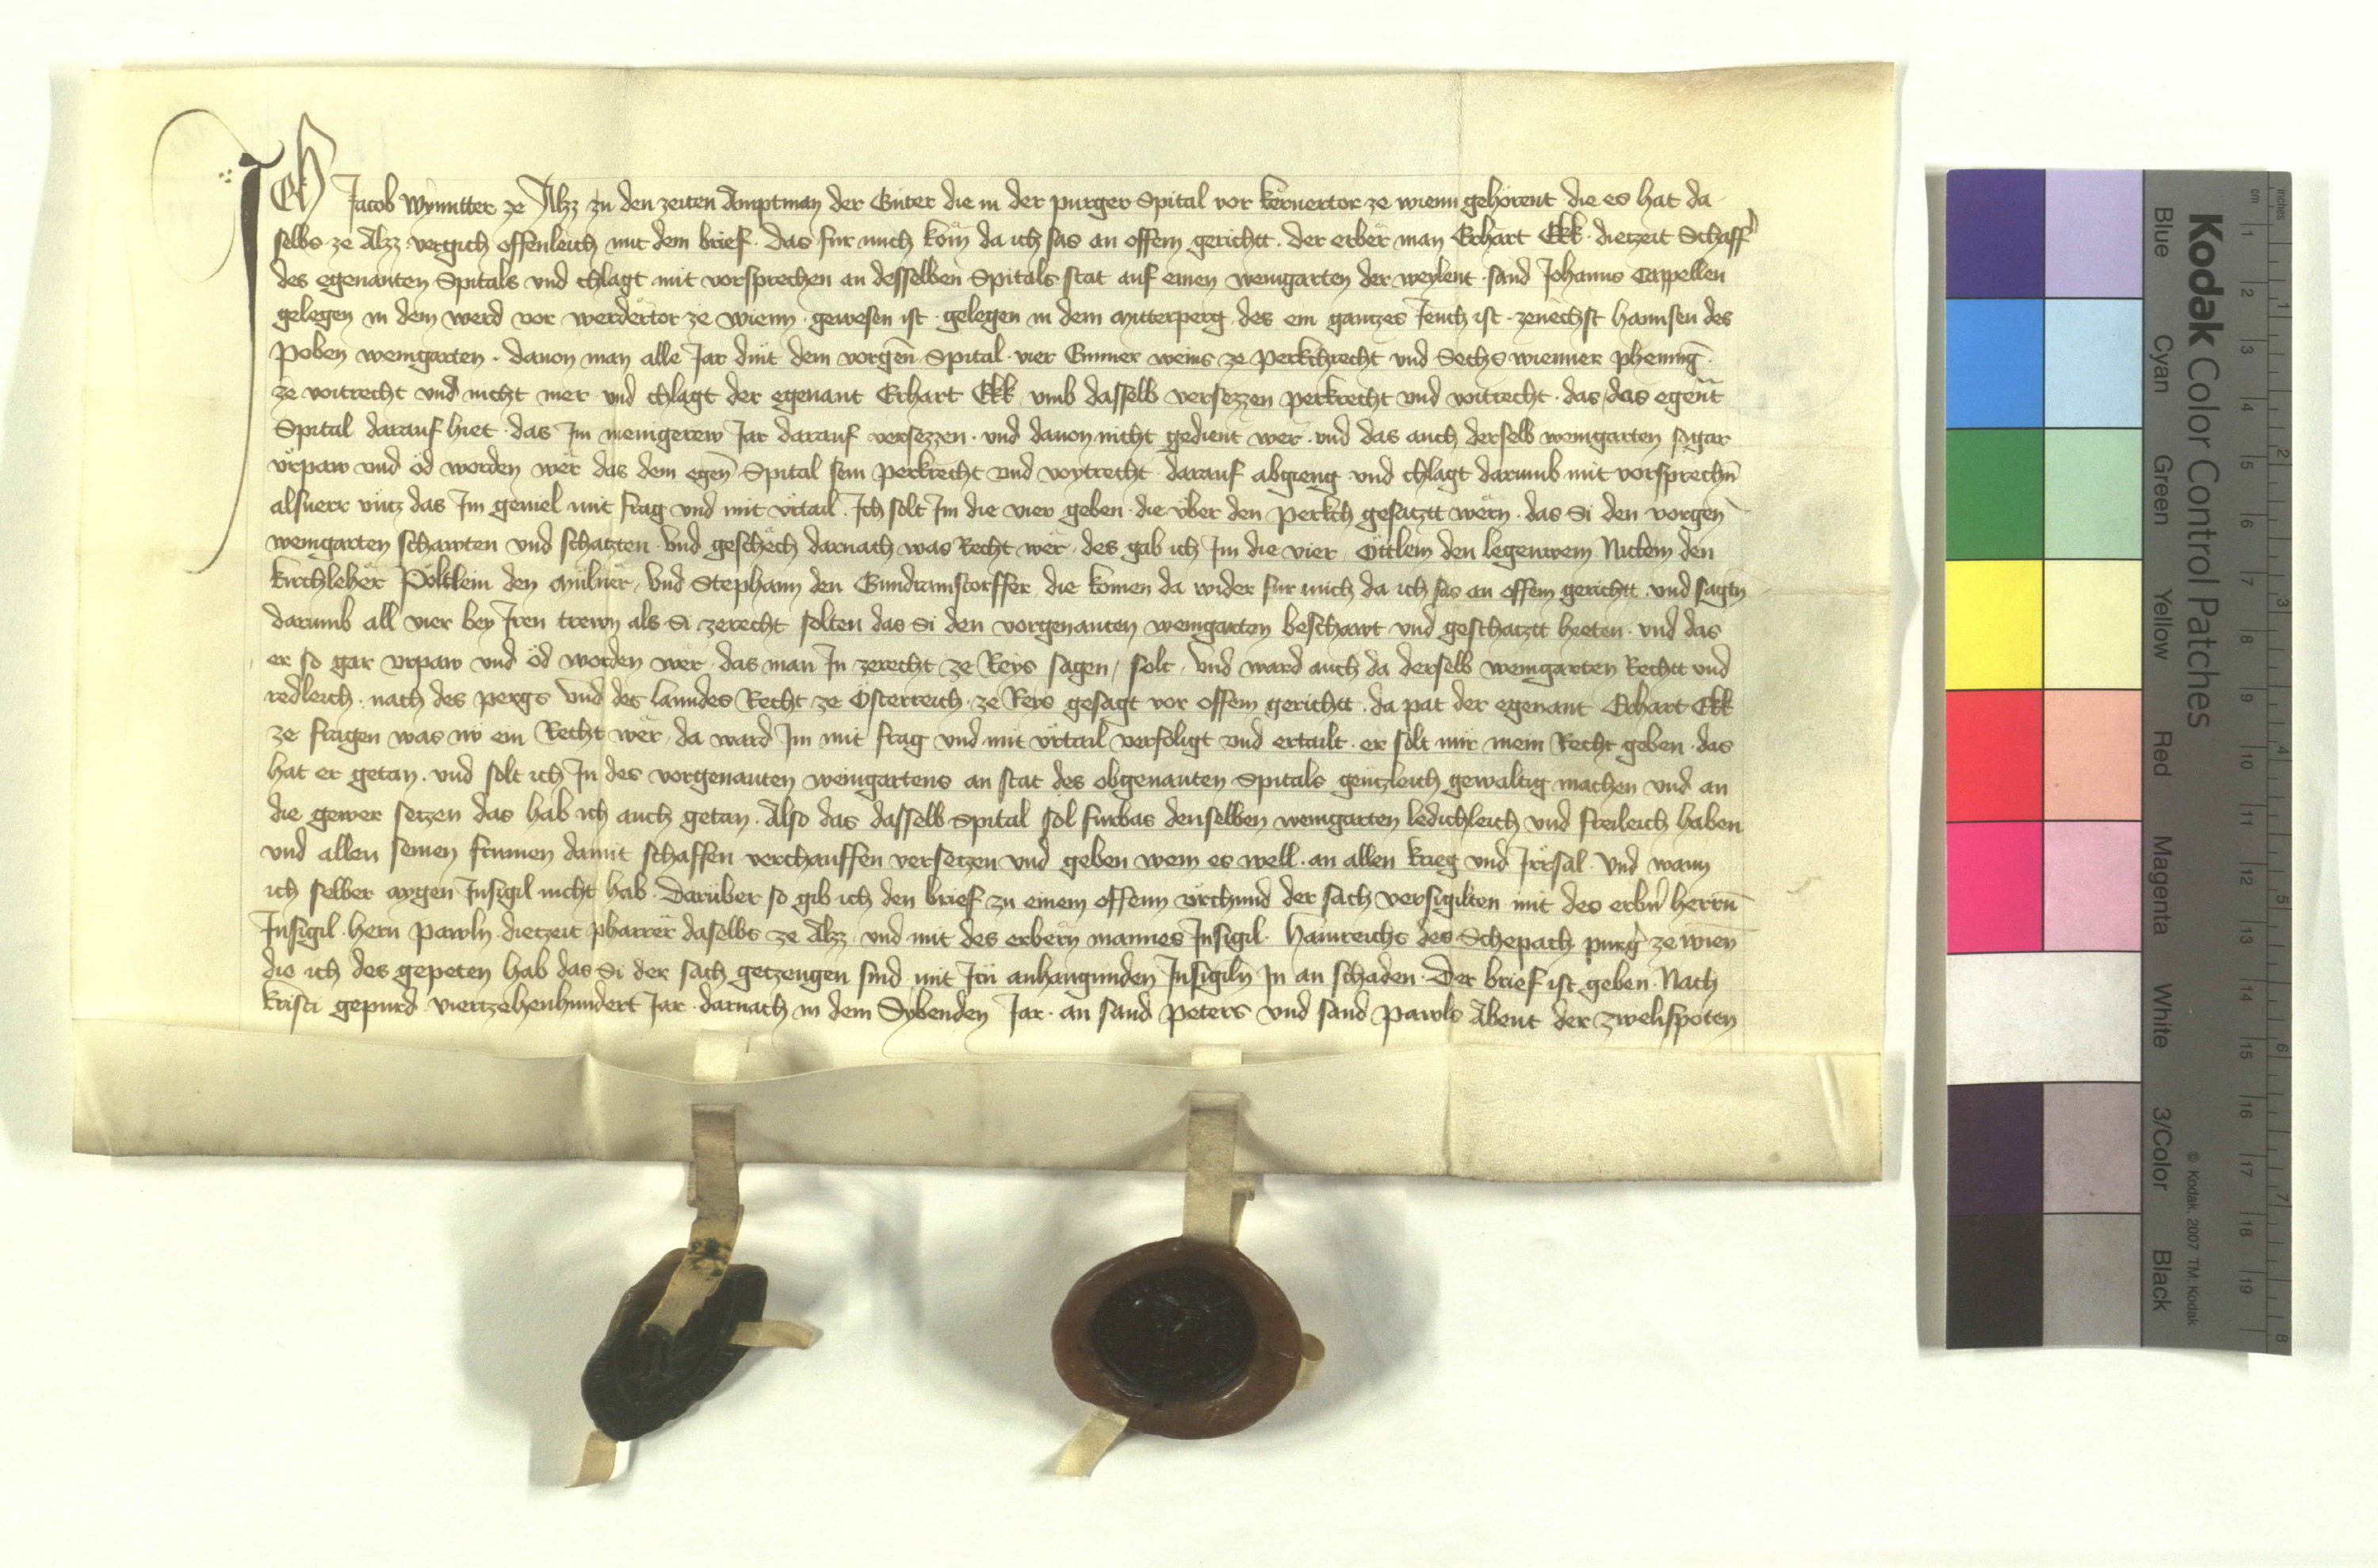 ICH Jacob Wynntter ze Alzz zu den zeiten Amptman der Güter die in der purger Spital vor kernertor ze wienn gehörent die es hat da
selbs ze Alzz vergich offenleich mit dem brief. das fur mich kom da ich sas an offem gerichtt. der erber man Erhart Ekk dietzeit Schaff
des egenanten Spitals vnd chlagt mit vorsprechen an desselben Spitals stat auf einen weingarten der weylent sand Johanns Cappellen
gelegen in dem werd vor werdertor ze wienn gewesen ist gelegen in dem Mitterperg des ein gantzes Jeuch ist zenechst hannsen des
Poben weingarten. dauon man alle Jar dint dem vorgen̄ Spital vier Emmer weins ze perkchrecht vnd Sechs wienner phennīg
ze voitrecht vnd nicht mer vnd chlagt der egenant Erhart Ekk vmb dasselb versezzen perkrecht vnd voitrecht. das das egen̄t
Spital darauf hiet. das Im menigerew Jar darauf versezzen. vnd dauon nicht gedient wer. vnd das auch derselb weingarten sogar
vrpaw vnd öd worden wer das dem egen̄ Spital sein perkrecht vnd voytrecht darauf abgieng vnd chlagt darumb mit vorsprechn̄
alsuerr vntz das Im geuiel mit frag vnd mit vrtail. Ich solt Im die vier geben die vber den perkch gesatztt wern. das Si den vorgen̄
weingarten schawten vnd schatzten vnd geschech darnach was Recht wer. des gab ich Im die vier Ottlein den legenwein Niclein den
kirchleher Pöltlein den Mülner, vnd Stephann den Gundramstorffer die komen da wider fur mich da ich sas an offem gerichtt vnd sagtn
darumb all vier bey Iren trewn als Si zerecht solten das Si den vorgenanten weingarten beschawt vnd geschatztt hieten. vnd das
er so gar vrpaw vnd öd worden wer das man In zerecht ze Reys sagen solt. vnd ward auch da derselb weingarten Rechtt vnd
redleich nach des pergs vnd des lanndes Recht ze Österreich ze Reys gesagt vor offem gerichtt. da pat der egenant Erhart Ekk
ze fragen was nv ein Recht wer. da ward Im mit frag vnd mit vrtail veruoligt vnd ertailt. er solt mir mein Recht geben das
hat er getan. vnd solt ich In des vorgenanten weingartens an stat des obgenanten Spitals gentzleich gewaltig machen vnd an
die gewer setzen das hab ich auch getan. Also das dasselb Spital sol furbas denselben weingarten ledichleich vnd freileich haben
vnd allen seinen frumen damit schaffen verchauffen versetzen vnd geben wem es well. an allen krieg vnd Irrsal. vnd wann
ich selber aygen Insigil nicht hab. Darüber so gib ich den brief zu einem offenn vrchund der sach versigilten mit des erbn̄ herrn̄
Insigil hern pawln dietzeit pharrer daselbs ze Alzz vnd mit des erbern mannes Insigil. Hainreichs des Schepach purg̉ ze wien
die ich des gepeten hab das Si der sach getzeugen sind mit Irn anhangunden Insigiln̄ In an schaden. Der brief ist geben. Nach
kristi gepurd viertzehenhundert Jar. darnach in dem Sybenden Jar. an sand Peters vnd sand Pawls Abent der zwelifpoten
Kodak Color Control Patches
Blue Cyan Green Yellow Red Magenta White 3/Color Black
© Kodak, 2007 TM: Kodak
cm 1 2 3 4 5 6 7 8 9 10 11 12 13 14 15 16 17 18 19
inches 1 2 3 4 5 6 7 8